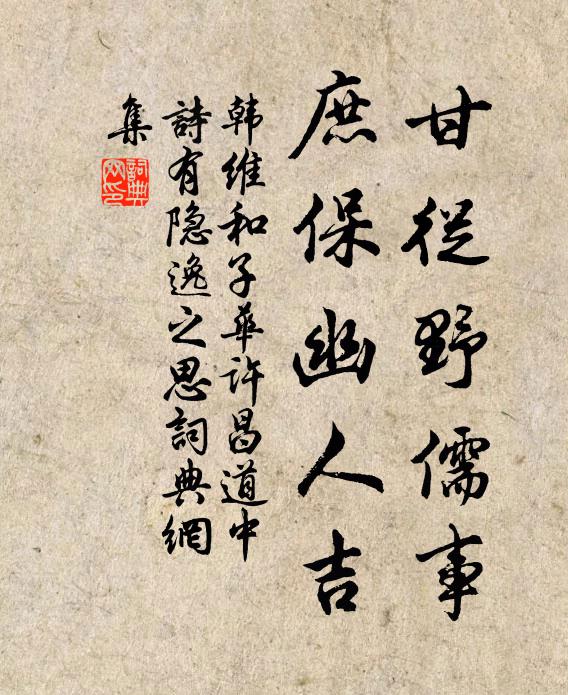 甘從野儒事
庶保幽人吉
韩維和子華许昌道中
詩有隐逸之思詞典網
集
詞典網印